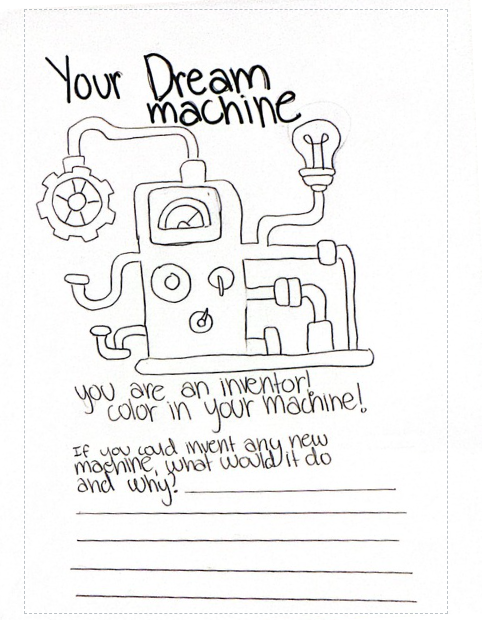 Your Dream
machine
you are an inventor!
color in your machine!
If you could invent any new
machine, what would it do
and why?